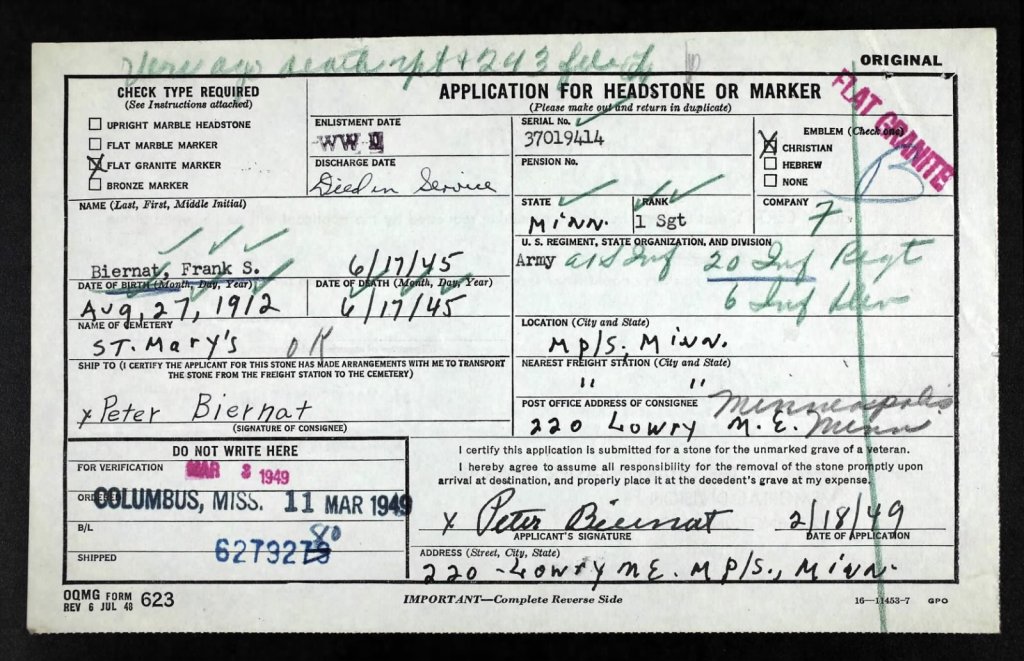 Very ago death rpt + 293 filed
ORIGINAL
CHECK TYPE REQUIRED
(See Instructions attached)
UPRIGHT MARBLE HEADSTONE
FLAT MARBLE MARKER
X FLAT GRANITE MARKER
BRONZE MARKER
APPLICATION FOR HEADSTONE OR MARKER
(Please make out and return in duplicate)
ENLISTMENT DATE
WW II
DISCHARGE DATE
Died in Service
SERIAL No.
37019414
PENSION No.
EMBLEM (Check one)
X CHRISTIAN
HEBREW
NONE
FLAT GRANITE
STATE
MINN.
RANK
1 Sgt
COMPANY
7
NAME (Last, First, Middle Initial)
Biernat, Frank S.
6/17/45
U. S. REGIMENT, STATE ORGANIZATION, AND DIVISION
Army 20 Inf Regt
6 Inf Div
DATE OF BIRTH (Month, Day, Year)
Aug, 27, 1912
DATE OF DEATH (Month, Day, Year)
6/17/45
NAME OF CEMETERY
ST. Mary's OK
LOCATION (City and State)
Mpls, Minn.
SHIP TO (I CERTIFY THE APPLICANT FOR THIS STONE HAS MADE ARRANGEMENTS WITH ME TO TRANSPORT
THE STONE FROM THE FREIGHT STATION TO THE CEMETERY)
x Peter Biernat
(SIGNATURE OF CONSIGNEE)
NEAREST FREIGHT STATION (City and State)
" "
POST OFFICE ADDRESS OF CONSIGNEE
220 Lowry N.E. Minneapolis
Minn
DO NOT WRITE HERE
FOR VERIFICATION
MAR 3 1949
ORDERED
COLUMBUS, MISS. 11 MAR 1949
B/L
80
6279279
SHIPPED
I certify this application is submitted for a stone for the unmarked grave of a veteran.
I hereby agree to assume all responsibility for the removal of the stone promptly upon
arrival at destination, and properly place it at the decedent's grave at my expense.
x Peter Biernat
APPLICANT'S SIGNATURE
2/18/49
DATE OF APPLICATION
ADDRESS (Street, City, State)
220 - Lowry NE. Mpls., Minn.
OQMG FORM
REV 6 JUL 48 623
IMPORTANT—Complete Reverse Side
16—11453-7 GPO